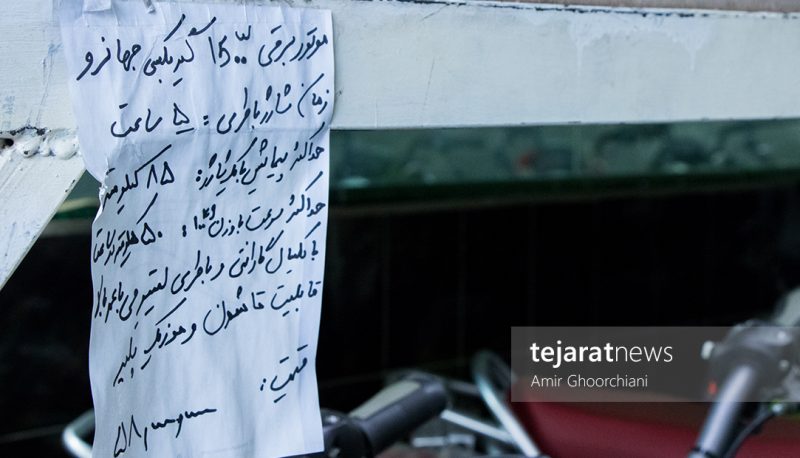 موتور برقی ۱۵۰۰ گیربکسی جهانرو
زمان شارژ باطری : ۵ ساعت
حداکثر پیمایش با یکبار شارژ: ۸۵ کیلومتر
حداکثر سرعت با وزن : ۵۰ کیلومتر ساعت
با یکسال گارانتی و باطری لیتیومی با عمر بالا
قابلیت تاشون و موزیک پلیر
قیمت :
tejaratnews
Amir Ghoorchiani